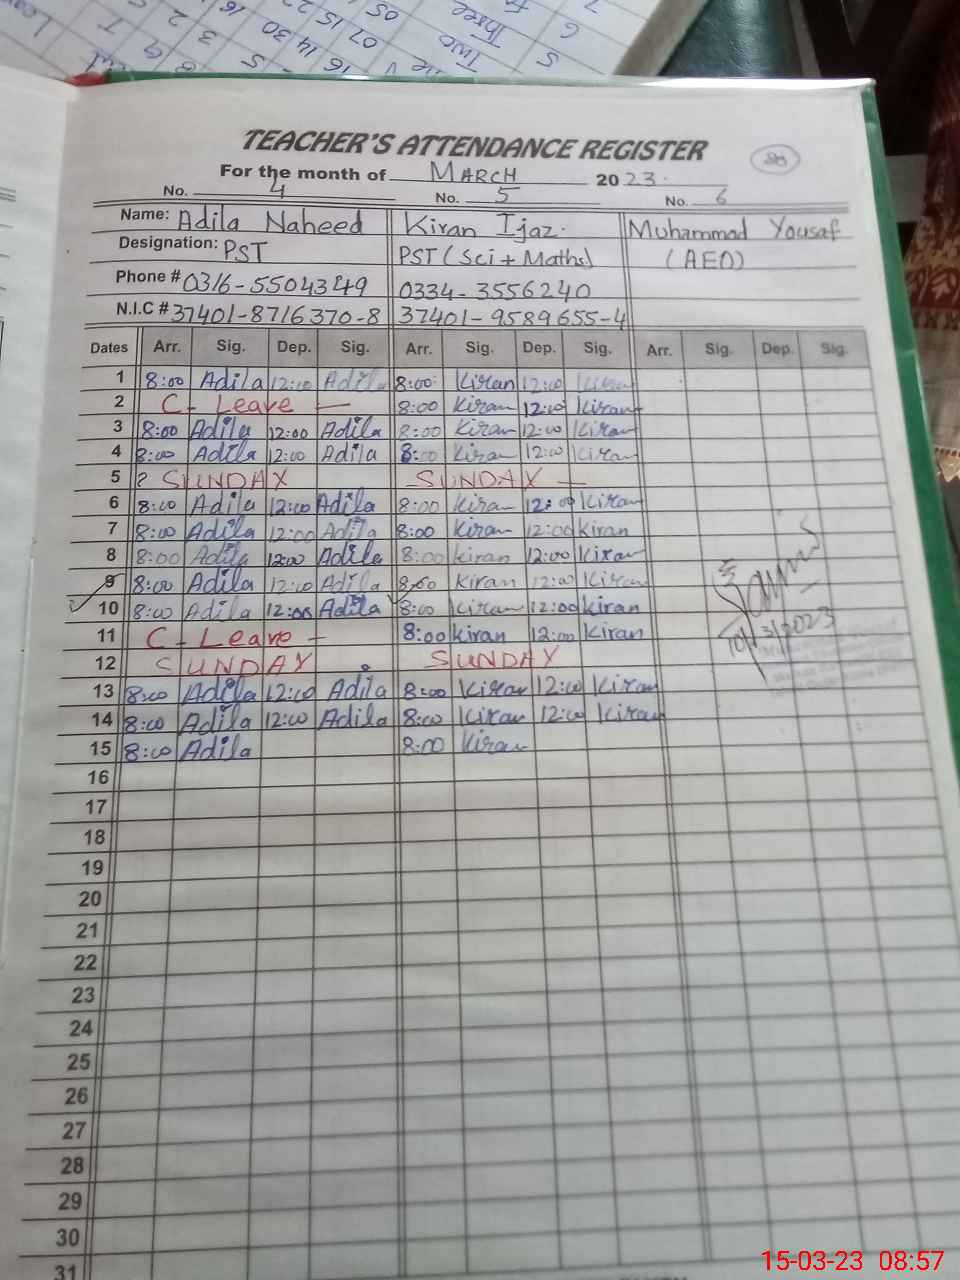 TEACHER'S ATTENDANCE REGISTER
For the month of MARCH 2023
No. 4 No. 5 No. 6
Name: Adila Naheed Kiran Ijaz. Muhammad Yousaf
Designation: PST PST (Sci + Maths) (AEO)
Phone # 0316-5504349 0334-3556240
N.I.C # 37401-8716370-8 37401-9589655-4
Dates Arr. Sig. Dep. Sig. Arr. Sig. Dep. Sig. Arr. Sig. Dep. Sig.
1 8:00 Adila 12:00 Adila 8:00 Kiran 12:00 Kiran
2 C- Leave — 8:00 Kiran 12:00 Kiran
3 8:00 Adila 12:00 Adila 8:00 Kiran 12:00 Kiran
4 8:00 Adila 12:00 Adila 8:00 Kiran 12:00 Kiran
5 SUNDAY SUNDAY —
6 8:00 Adila 12:00 Adila 8:00 Kiran 12:00 Kiran
7 8:00 Adila 12:00 Adila 8:00 Kiran 12:00 kiran
8 8:00 Adila 12:00 Adila 8:00 kiran 12:00 Kiran
9 8:00 Adila 12:00 Adila 8:00 Kiran 12:00 Kiran
10 8:00 Adila 12:00 Adila 8:00 Kiran 12:00 kiran
11 C- Leave - 8:00 kiran 12:00 Kiran
12 SUNDAY SUNDAY
13 8:00 Adila 12:00 Adila 8:00 Kiran 12:00 Kiran
14 8:00 Adila 12:00 Adila 8:00 Kiran 12:00 Kiran
15 8:00 Adila 8:00 Kiran
16
17
18
19
20
21
22
23
24
25
26
27
28
29
30
31
15-03-23 08:57